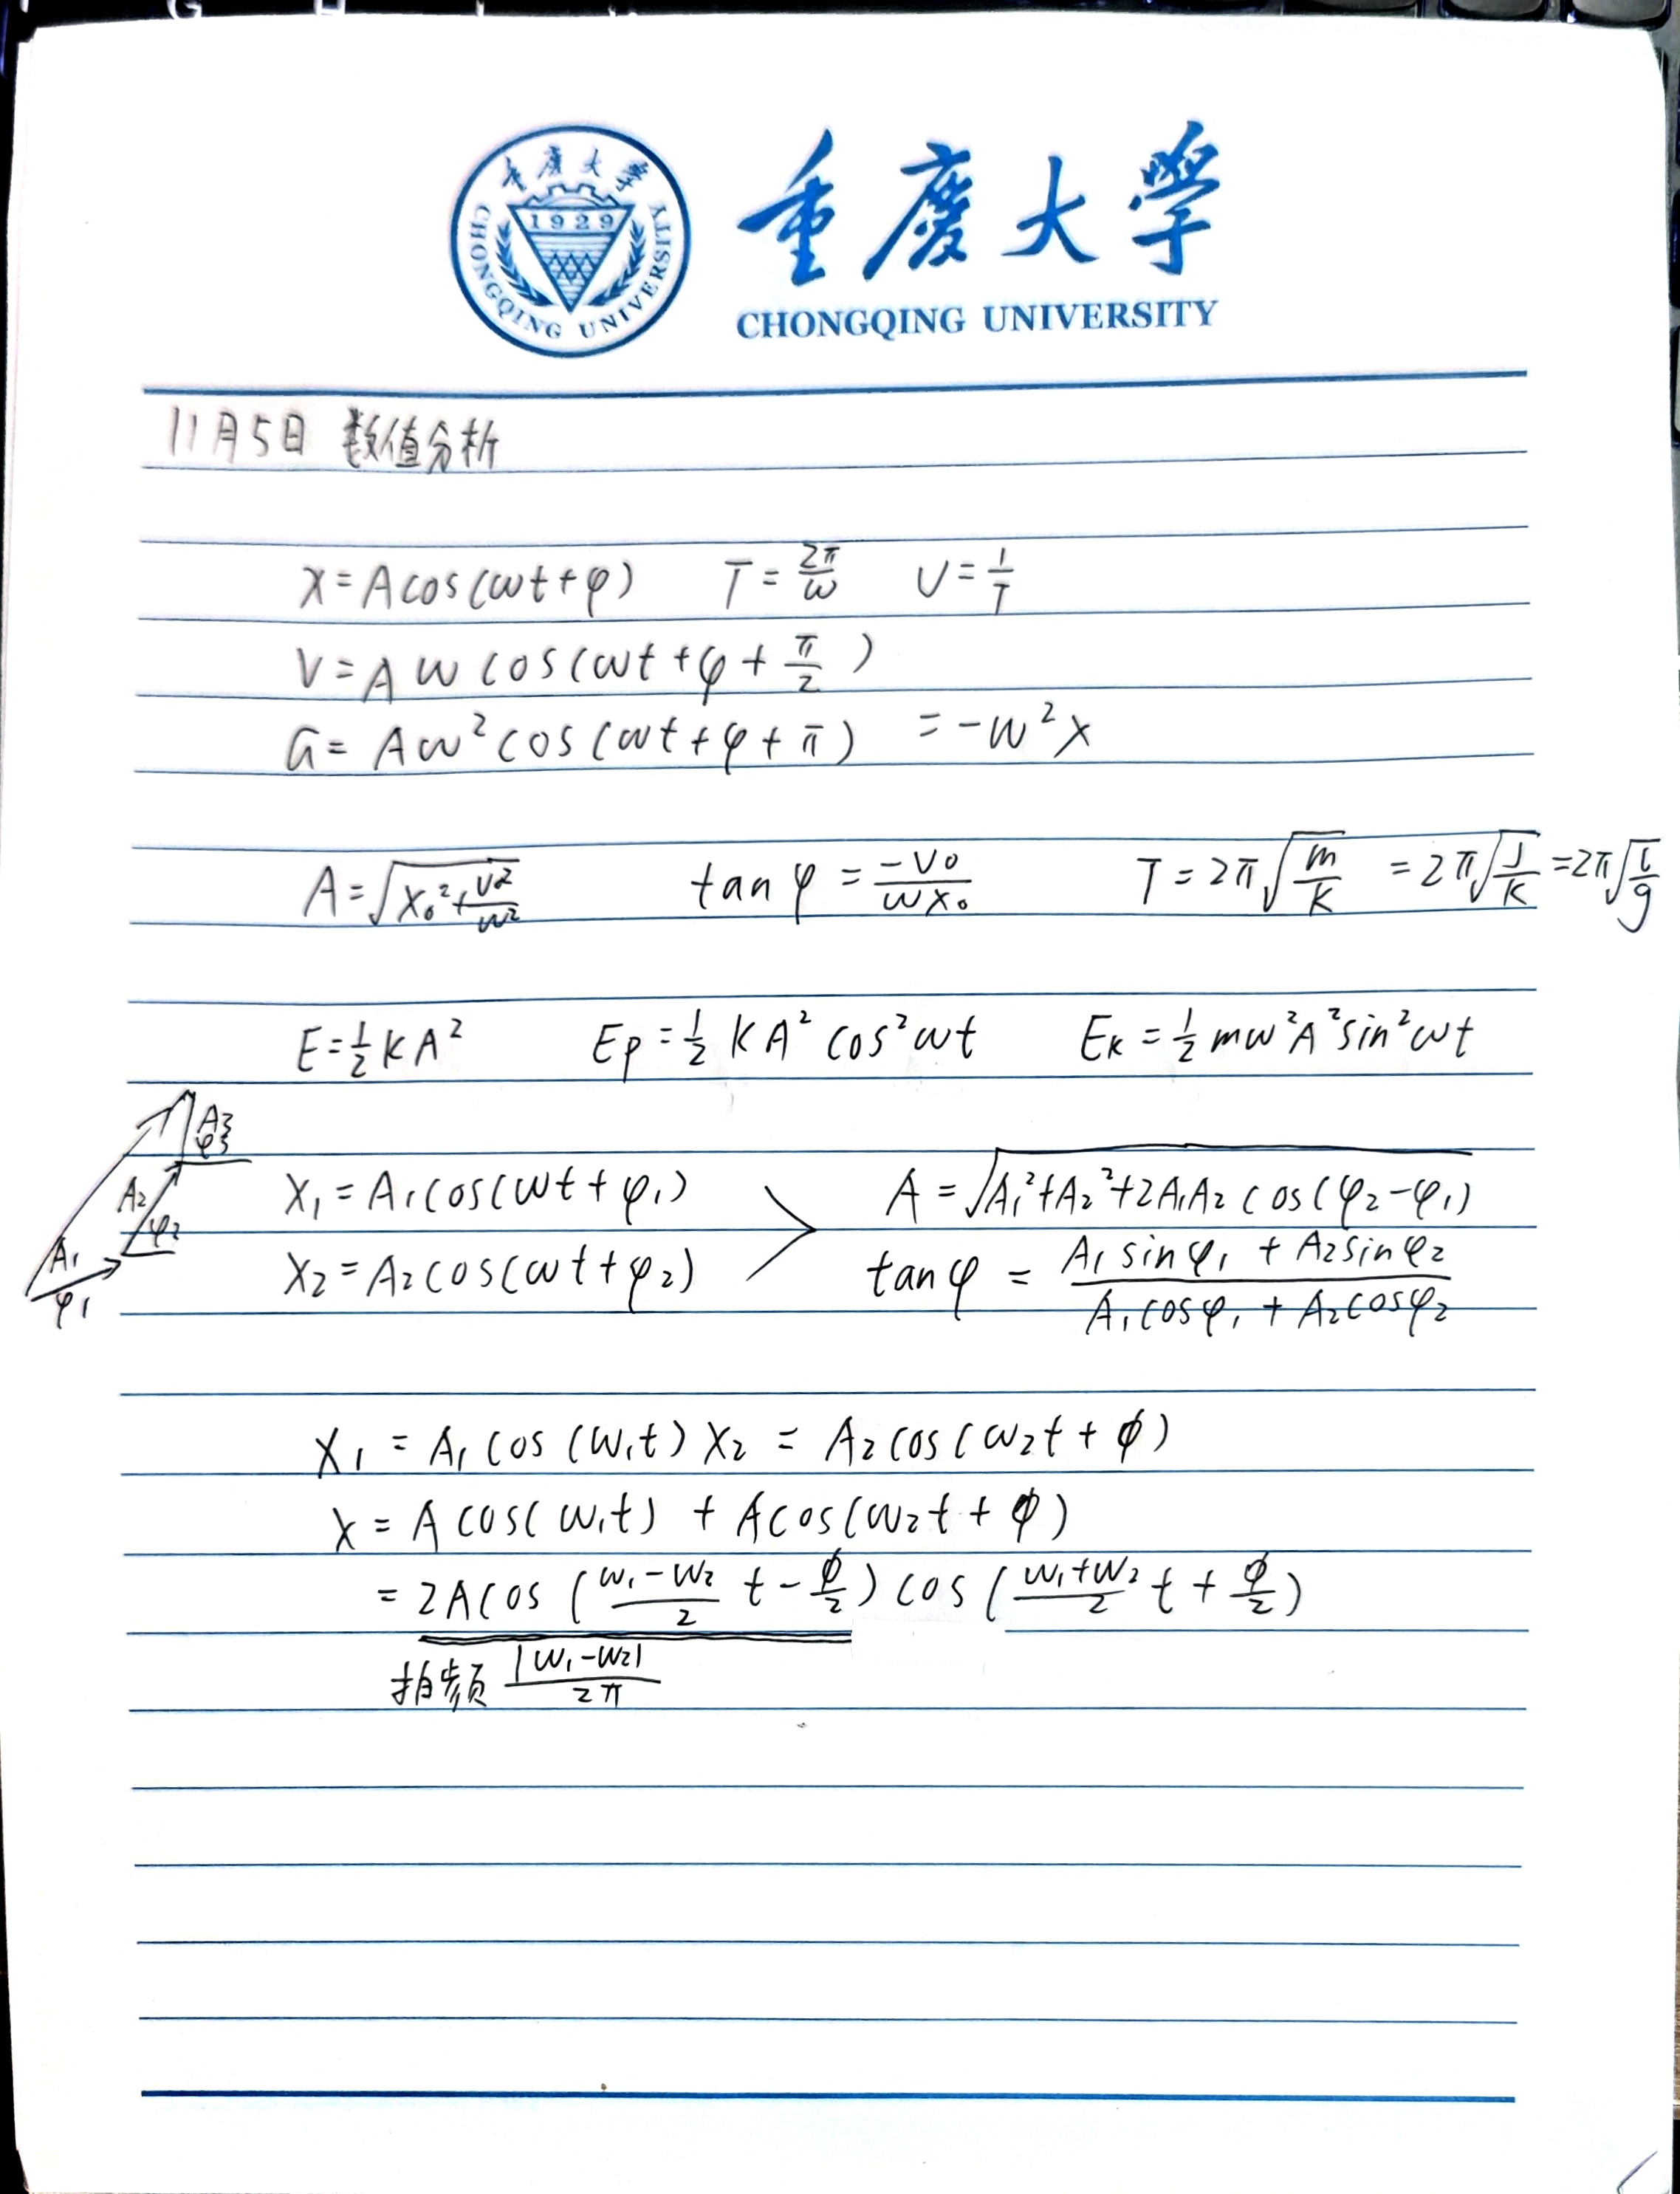 重庆大学
1929
CHONGQING UNIVERSITY
重慶大學
CHONGQING UNIVERSITY
11月5日 数值分析
x = A cos(ωt+φ) T = 2π/ω ν = 1/T
v = Aω cos(ωt+φ+π/2)
a = Aω² cos(ωt+φ+π) = -ω²x
A = √(x₀²+v₀²/ω²) tanφ = -v₀/ωx₀ T = 2π√(m/k) = 2π√(J/k) = 2π√(l/g)
E = ½kA² Ep = ½kA² cos²ωt Ek = ½mω²A² sin²ωt
A₃
φ₃
A₂
φ₂
A₁
φ₁
x₁ = A₁cos(ωt+φ₁) A = √(A₁²+A₂²+2A₁A₂cos(φ₂-φ₁))
x₂ = A₂cos(ωt+φ₂) tanφ = (A₁sinφ₁ + A₂sinφ₂)/(A₁cosφ₁ + A₂cosφ₂)
x₁ = A₁cos(ω₁t) x₂ = A₂cos(ω₂t+ϕ)
x = Acos(ω₁t) + Acos(ω₂t+ϕ)
= 2Acos((ω₁-ω₂)/2 t - ϕ/2) cos((ω₁+ω₂)/2 t + ϕ/2)
拍频 |ω₁-ω₂|/2π